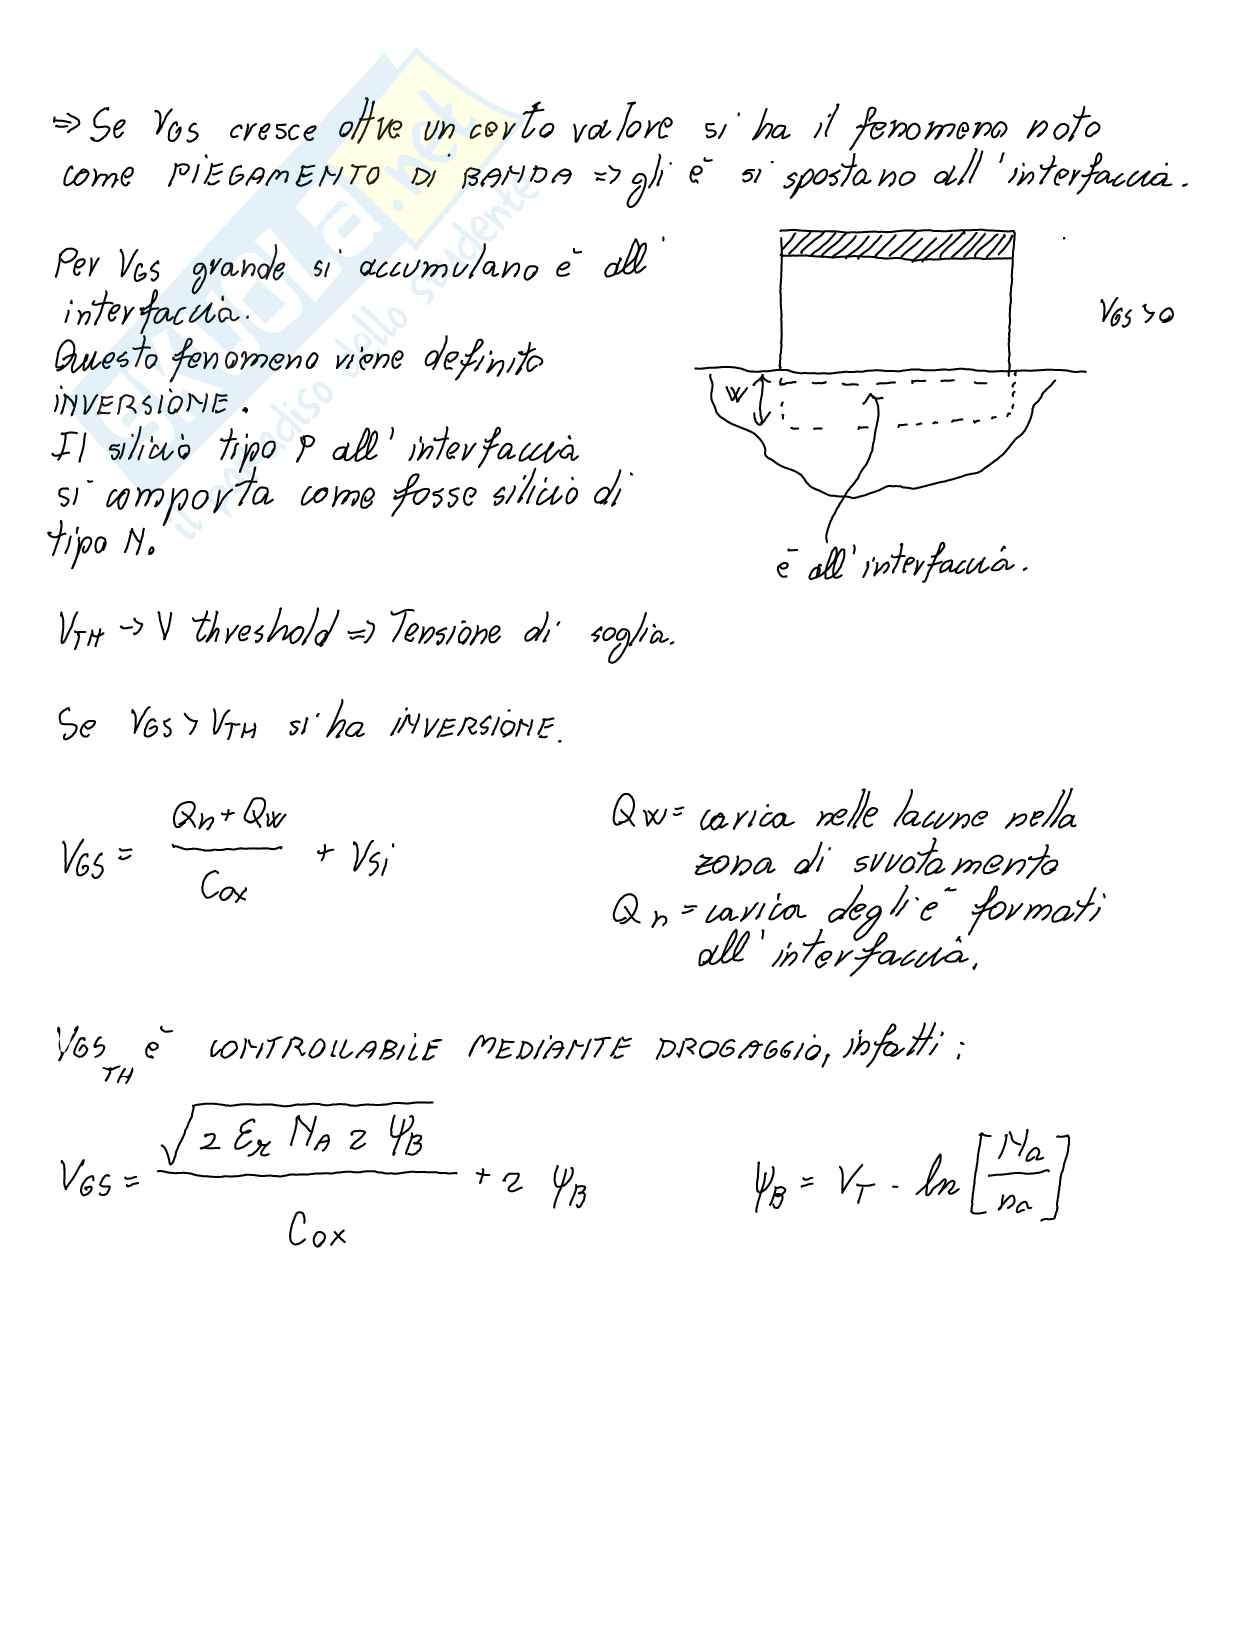 => Se VGS cresce oltre un certo valore si ha il fenomeno noto
come PIEGAMENTO DI BANDA => gli e⁻ si spostano all'interfaccia.
Per VGS grande si accumulano e⁻ all'
interfaccia.
Questo fenomeno viene definito
INVERSIONE.
Il silicio tipo P all'interfaccia
si comporta come fosse silicio di
tipo N.
VGS > 0
W
e⁻ all'interfaccia.
VTH -> V threshold => Tensione di soglia.
Se VGS > VTH si ha INVERSIONE.
VGS = (Qn + Qw) / Cox + VSi
Qw = carica nelle lacune nella
zona di svuotamento
Qn = carica degli e⁻ formati
all'interfaccia.
VGS TH è CONTROLLABILE MEDIANTE DROGAGGIO, infatti:
VGS = √(2 εr NA 2 ψB) / Cox + 2 ψB
ψB = VT · ln [Na / na]
SKUOLA.net
il paradiso dello studente